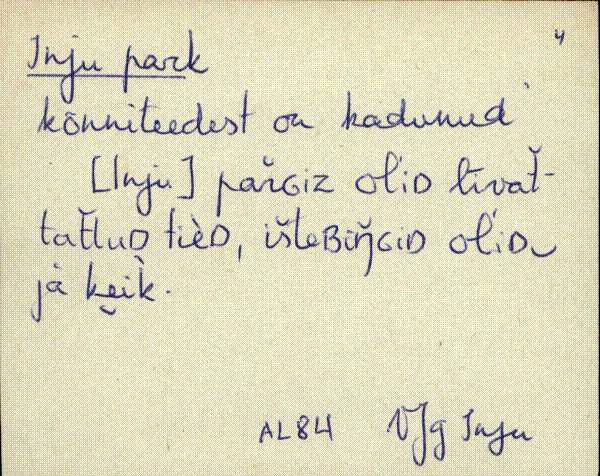 4
Inju park
kõnniteedest on kadunud
[Inju] par̆GIZ olíD līvăt-
tat̆luD tìèD, išteBiŋ̆GiD olíD
jà kei̯k̀.
AL84 VJg Inju